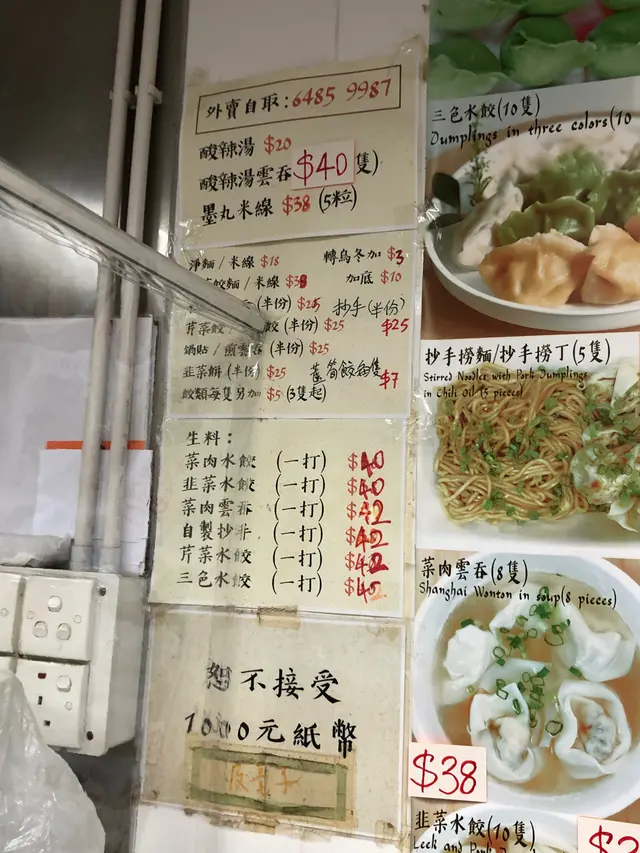 外賣自取:6485 9987
酸辣湯 $20
酸辣湯雲吞 $40 隻)
墨丸米線 $38 (5粒)
淨麵/米線 $18
轉烏冬加 $3
餃麵/米線
加底 $10
(半份) $25
抄手(半份)
$25
芹菜餃 餃(半份) $25
鍋貼/煎雲吞 (半份) $25
韮菜餅(半份) $25
餃每隻
$7
餃類每隻另加 $5 (3隻起)
生料:
菜肉水餃 (一打) $40
韮菜水餃 (一打) $40
菜肉雲吞 (一打) $42
自製抄手 (一打) $42
芹菜水餃 (一打) $42
三色水餃 (一打) $42
恕不接受
1000元紙幣
三色水餃(10隻)
Dumplings in three colors(10
抄手撈麵/抄手撈丁(5隻)
Stirred Noodles with Pork Dumplings
in Chili Oil (5 pieces)
菜肉雲吞(8隻)
Shanghai Wonton in soup(8 pieces)
$38
韮菜水餃(10隻)
Leek and Pork